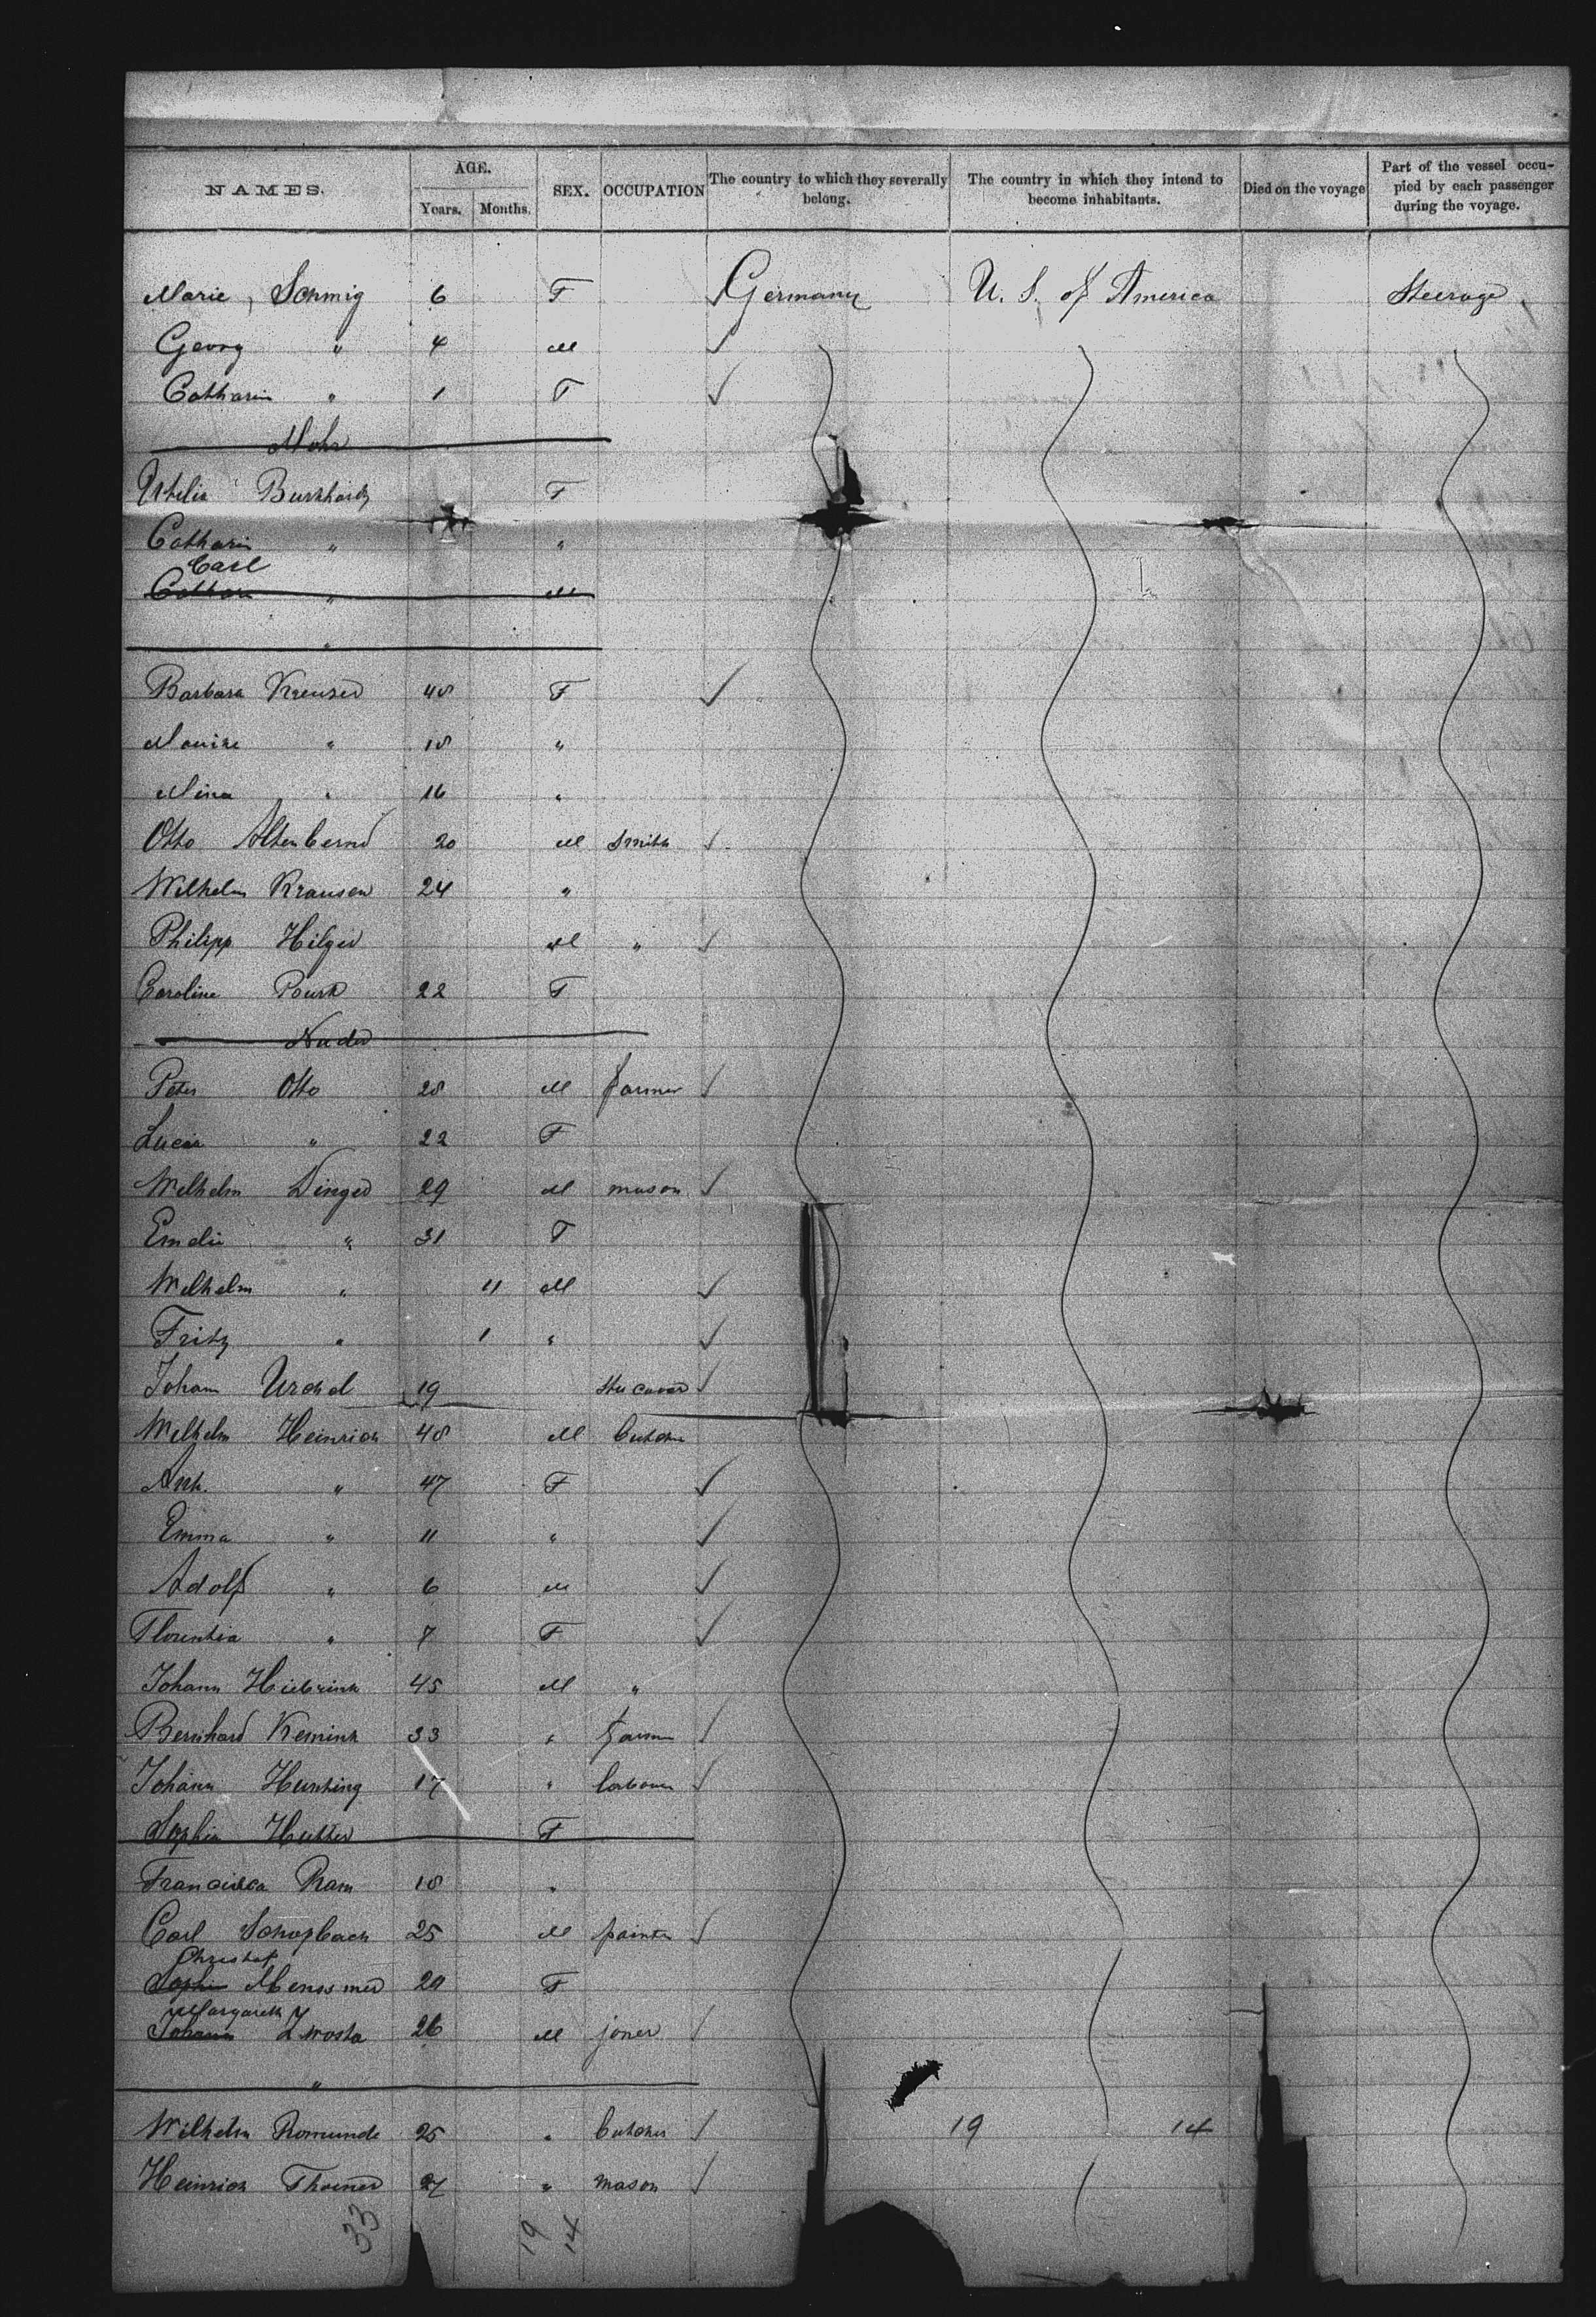 NAMES. AGE. Years. Months. SEX. OCCUPATION The country to which they severally belong. The country in which they intend to become inhabitants. Died on the voyage Part of the vessel occupied by each passenger during the voyage.
Marie, Schmig 6 F Germany U. S. of America Steerage
Georg " 4 M
Catharin " 1 F
Mohr
Burkhardt F
Catharin " "
Carl
" M
"
Barbara Kreuser 48 F
Louise " 18 "
Mina " 16 "
Otto Altenbernd 20 M Smith
Wilhelm Krausen 24 "
Philipp Hilger M "
Caroline 22 F
Nader
Peter Otto 28 M farmer
Lucia " 22 F
Wilhelm Dinger 29 M mason
Emelie " 31 F
Wilhelm " 11 M
Fritz " 1 "
Johann 19
Wilhelm Heinrich 48 M butcher
" 47 F
Emma " 11 "
Adolf " 6 M
Florentia " 7 F
Johann Hiebrink 45 M "
Bernhard Kemink 33 " farmer
Johann Hunting 17 " labourer
Sophia Hutter F
Francisca Ram 18 "
Carl Schopbach 25 M painter
Christof
Sophie 29 F
Margareth
Johann 26 M joner
"
Wilhelm Romunde 25 " butcher 19 14
Heinrich 27 " mason
33 19 14